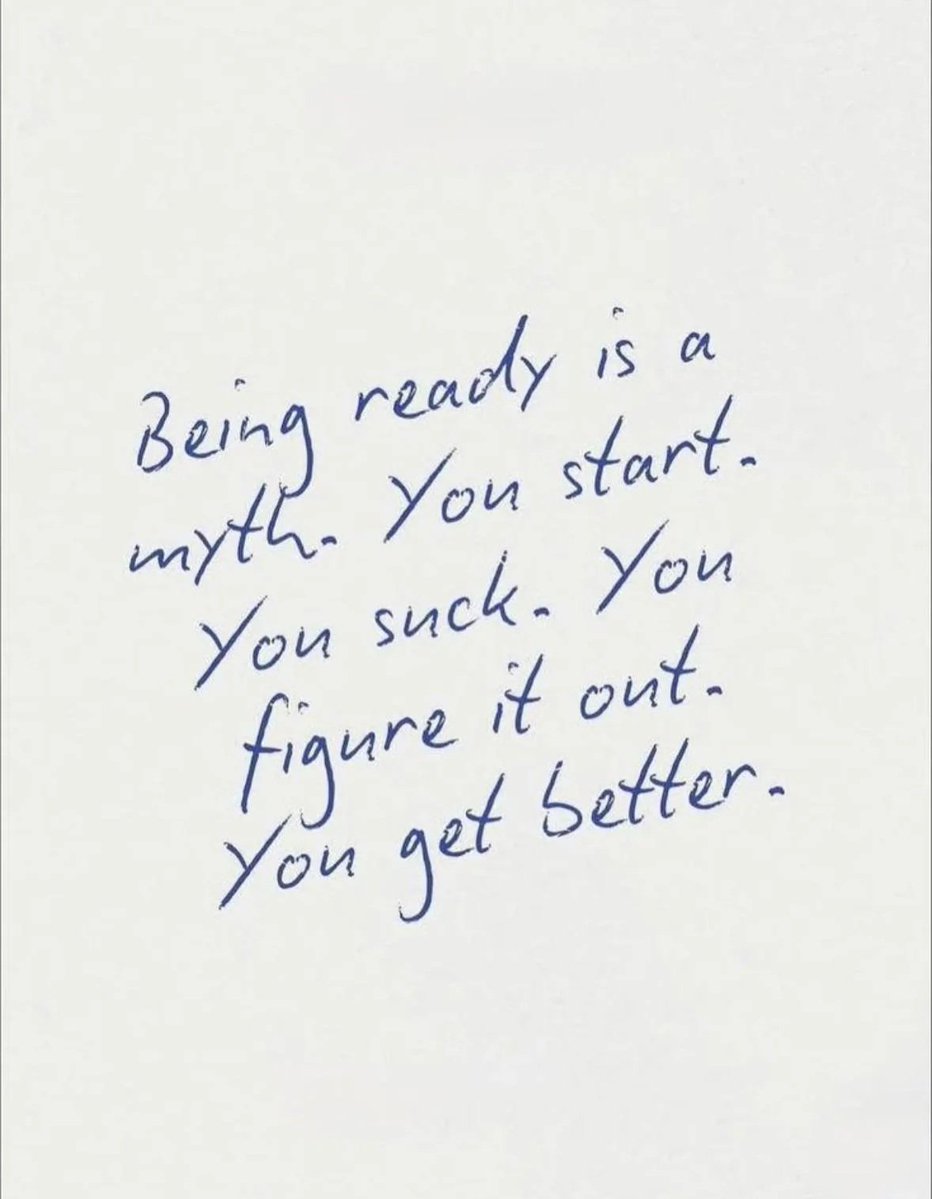 Being ready is a
myth. You start.
You suck. You
figure it out.
You get better.